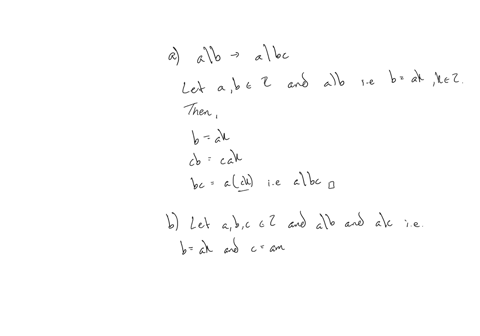 a) a|b → a|bc
Let a,b ∈ Z and a|b i.e b = ak, k∈Z.
Then,
b = ak
cb = cak
bc = a(ck) i.e a|bc □
b) Let a,b,c ∈ Z and a|b and a|c i.e.
b = ak and c = am